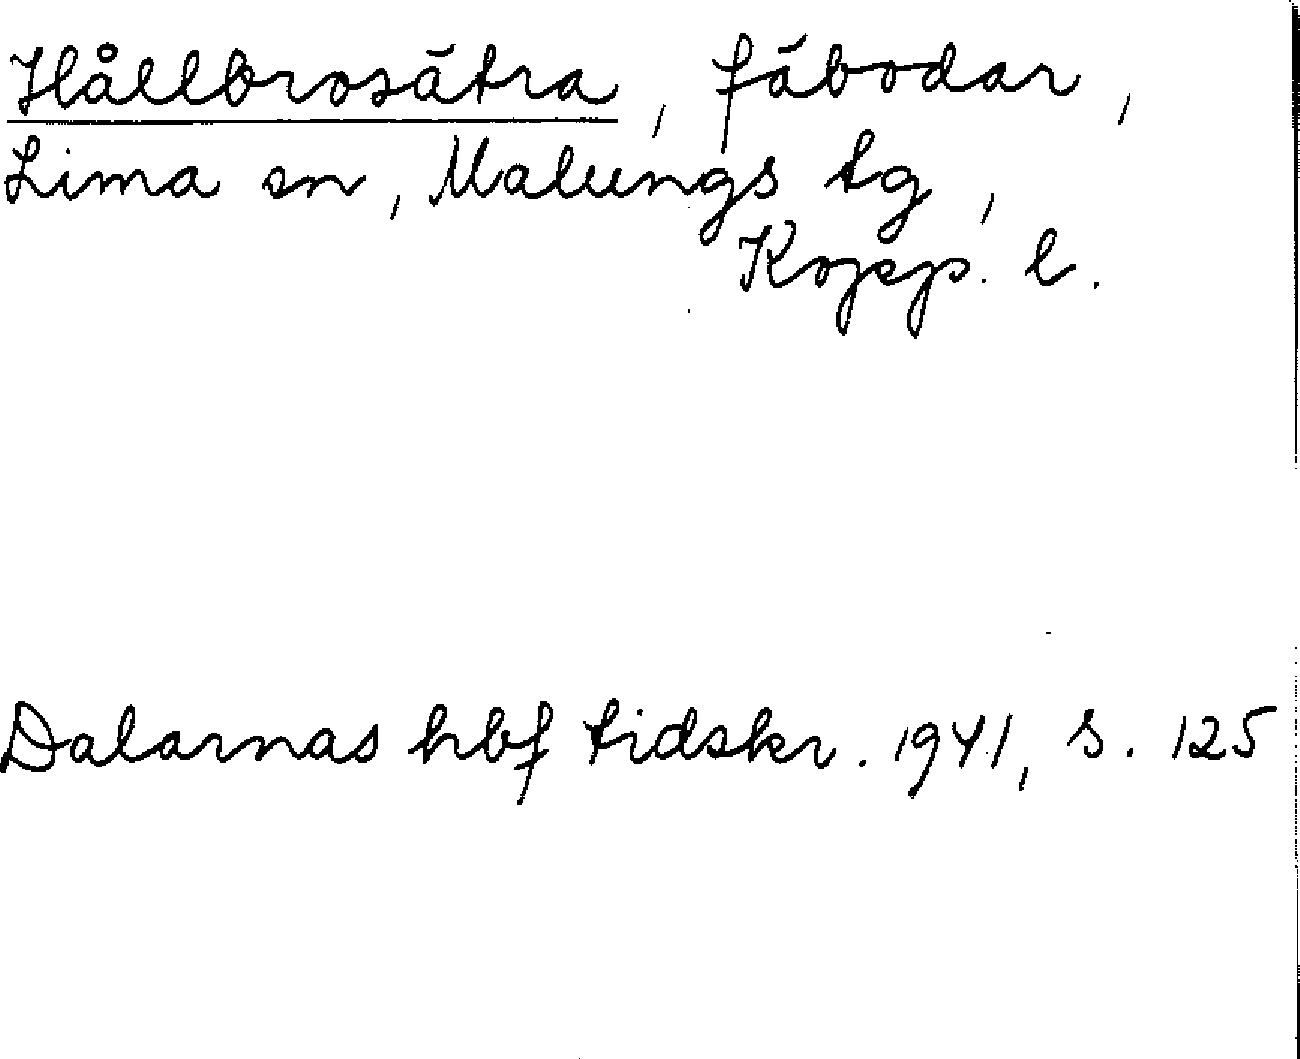 Hållbrosätra, fäbodar,
Lima sn, Malungs tg,
Kopp. l.
Dalarnas hbf tidskr. 1941, s. 125